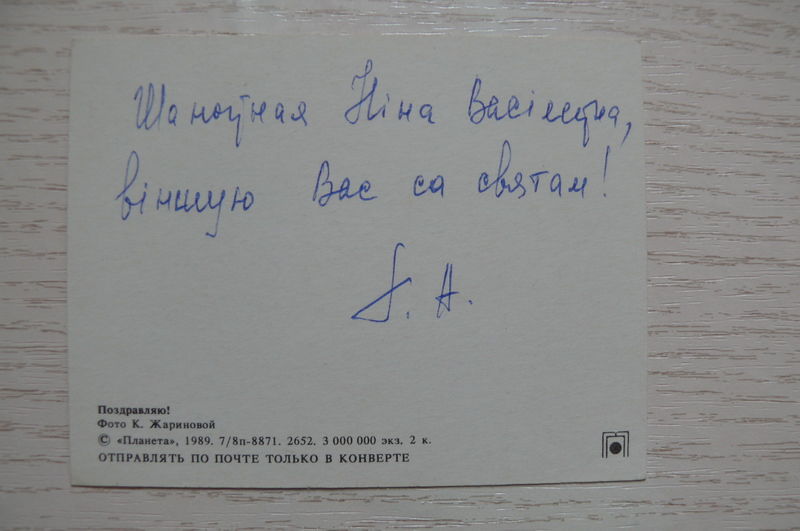 Шаноўная Ніна Васілеўна,
віншую Вас са святам!
Г. А.
Поздравляю!
Фото К. Жариновой
© «Планета», 1989. 7/8п-8871. 2652. 3 000 000 экз. 2 к.
ОТПРАВЛЯТЬ ПО ПОЧТЕ ТОЛЬКО В КОНВЕРТЕ